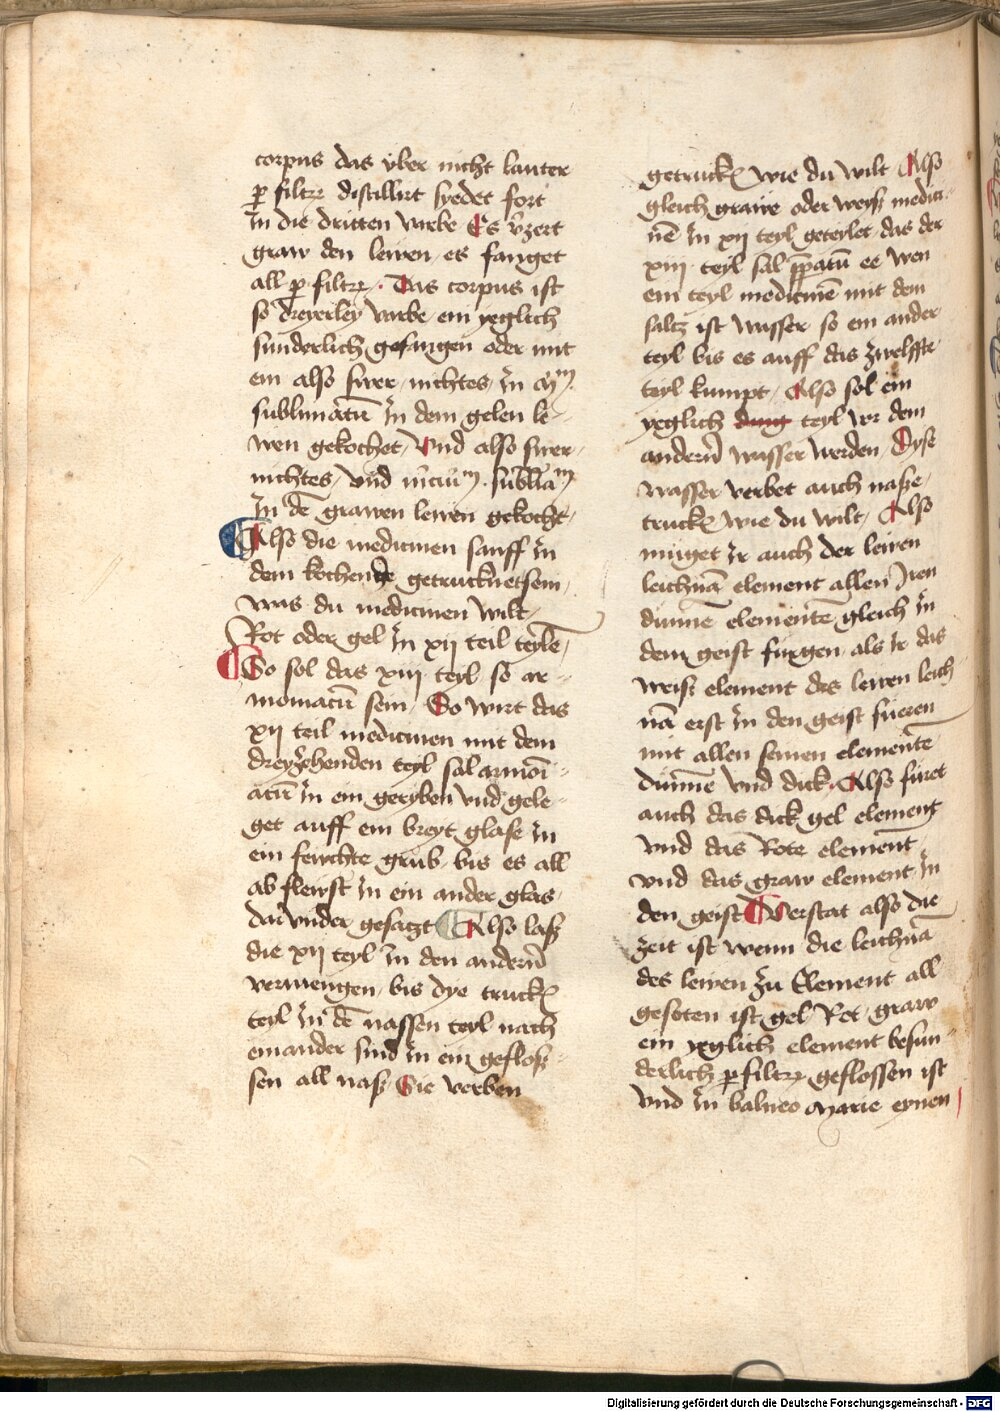 corpus das vber nicht lauter
p filtrz distillirt syedet fort
Jn die dritten varbe Es v̓zert
graw den lewen es fanget
all p filtrz · Das corpus ist
so dreyerley varbe ein yeglich
sunderlich gefangen oder mit
ein also swer nichtes Jn
sublimatū Jn dem gelen le-
wen gekochet Vnd also swer
nichtes vnd sublīa
Jn dē grawen lewen gekocht
Also die medicinen sanff Jn
dem kochen getrucknet sein
was du medicinen wilt
Rot oder gel Jn xij teil teyle
So sol das xiij teyl so ar-
moniacū sein So wirt das
xij teil medicinen mit dem
dreyzehenden teyl sal armoni-
acū Jn ein geryben vnd gele-
get auff ein breyt glase Jn
ein feuchte grub bis es all
ab flewst Jn ein ander glas
dar vnder gesaczt Also lass
die xij teyl Jn den andern̄
vermengen bis dye truckē
teyl Jn dē nassen teyl nach
einander sind Jn ein geflos-
sen all nass Sie verben
getruckē wie du wilt Also
gleich grawe oder weyss medici-
nē Jn xij teyl geteylet das der
xiij teyl sal pparatū ee wen
ein teyl medicinē mit dem
saltz ist wasser so ein ander
teyl bis es auff das zwelffte
teyl kumpt Also sol ein
yeglich ding teyl vor dem
andern̄ wasser werden Dyse
wasser verbet auch nasse
truckē wie du wilt Also
muget Jr auch der lewen
leichnā element allen Jren
dunnē elementē gleich Jn
dem geist furgen als Jr das
weiss element des lewen leich
nā erst Jn den geist fueren
mit allen seinen elementē
dunnē vnd dick Also furet
auch das dick gel element
vnd das Rote element
vnd das graw element Jn
den geist Verstat also die
zeit ist wenn die leichnā
des lewen zu Element all
gesoten ist gel Rot graw
ein yeglich element besun-
derlich p filtrz geflossen ist
vnd Jn balneo Marie eynen
Digitalisierung gefördert durch die Deutsche Forschungsgemeinschaft - DFG